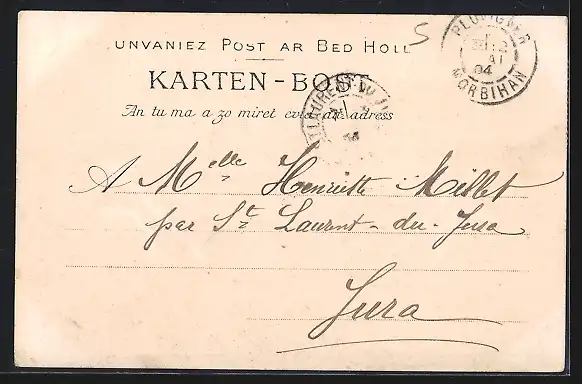 UNVANIEZ POST AR BED HOLL
KARTEN-BOST
An tu ma a zo miret evid an adress
5
PLUVIGNER
04
MORBIHAN
ST LAURENT-DU-J
A Melle Henriette Millet
par St Laurent-du-Jura
Jura